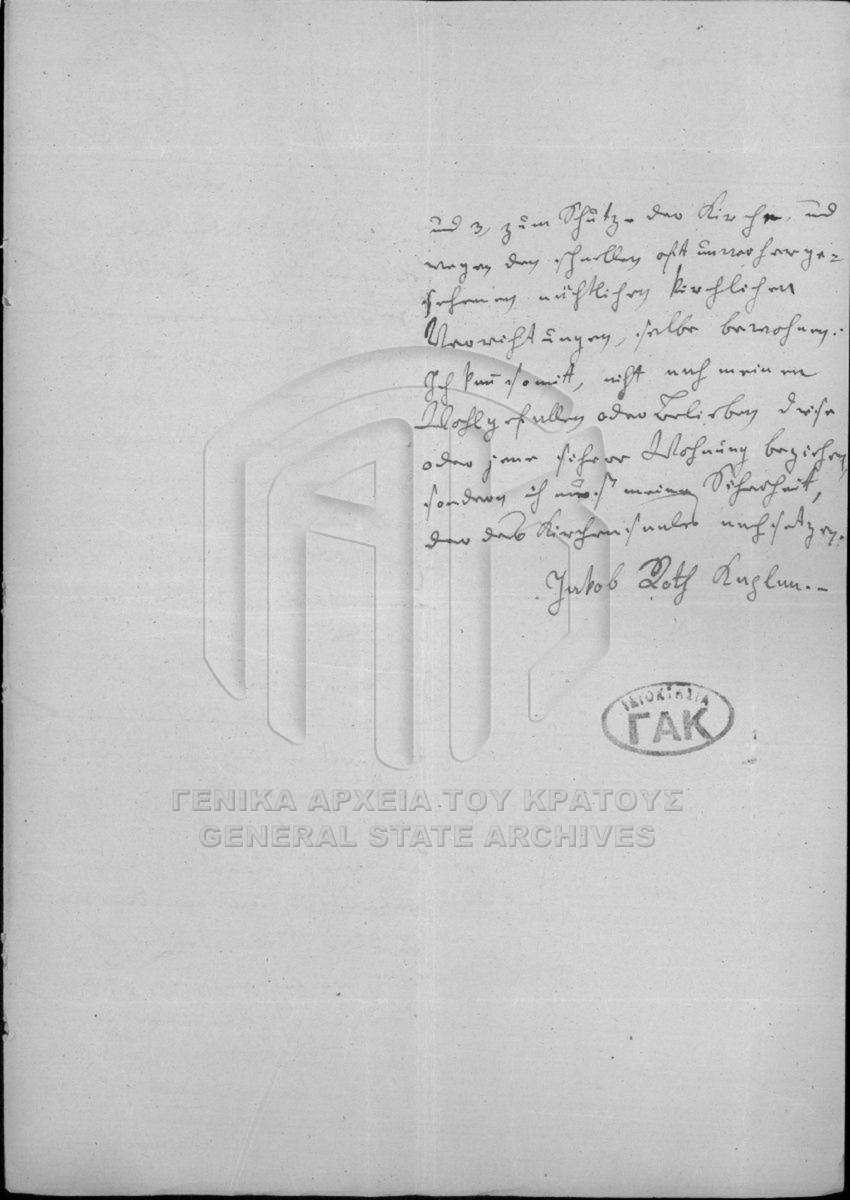 und 3, zum Schutz der Kirche, und
wegen den schnellen oft unvorherge=
sehenen nächtlichen kirchlichen
Verrichtungen, selbe bewohnen.
Ich kan̄ somit, nicht nach meinem
Wohlgefallen oder Belieben diese
oder jene sichere Wohnung beziehen,
sondern ich muß meine Sicherheit,
der des Kirchensaales nachsetzen.
Jakob Roth Kaplan.
ΙΔΙΟΚΤΗΣΙΑ
ΓΑΚ
ΓΕΝΙΚΑ ΑΡΧΕΙΑ ΤΟΥ ΚΡΑΤΟΥΣ
GENERAL STATE ARCHIVES